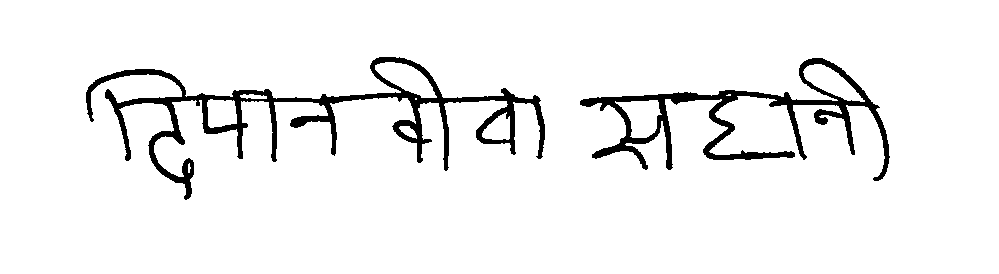 दिपान वीवा सहानी